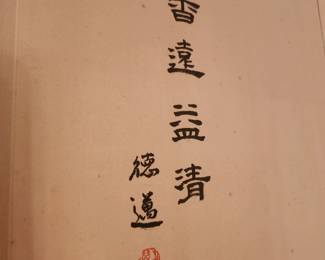 香遠益清
德邁